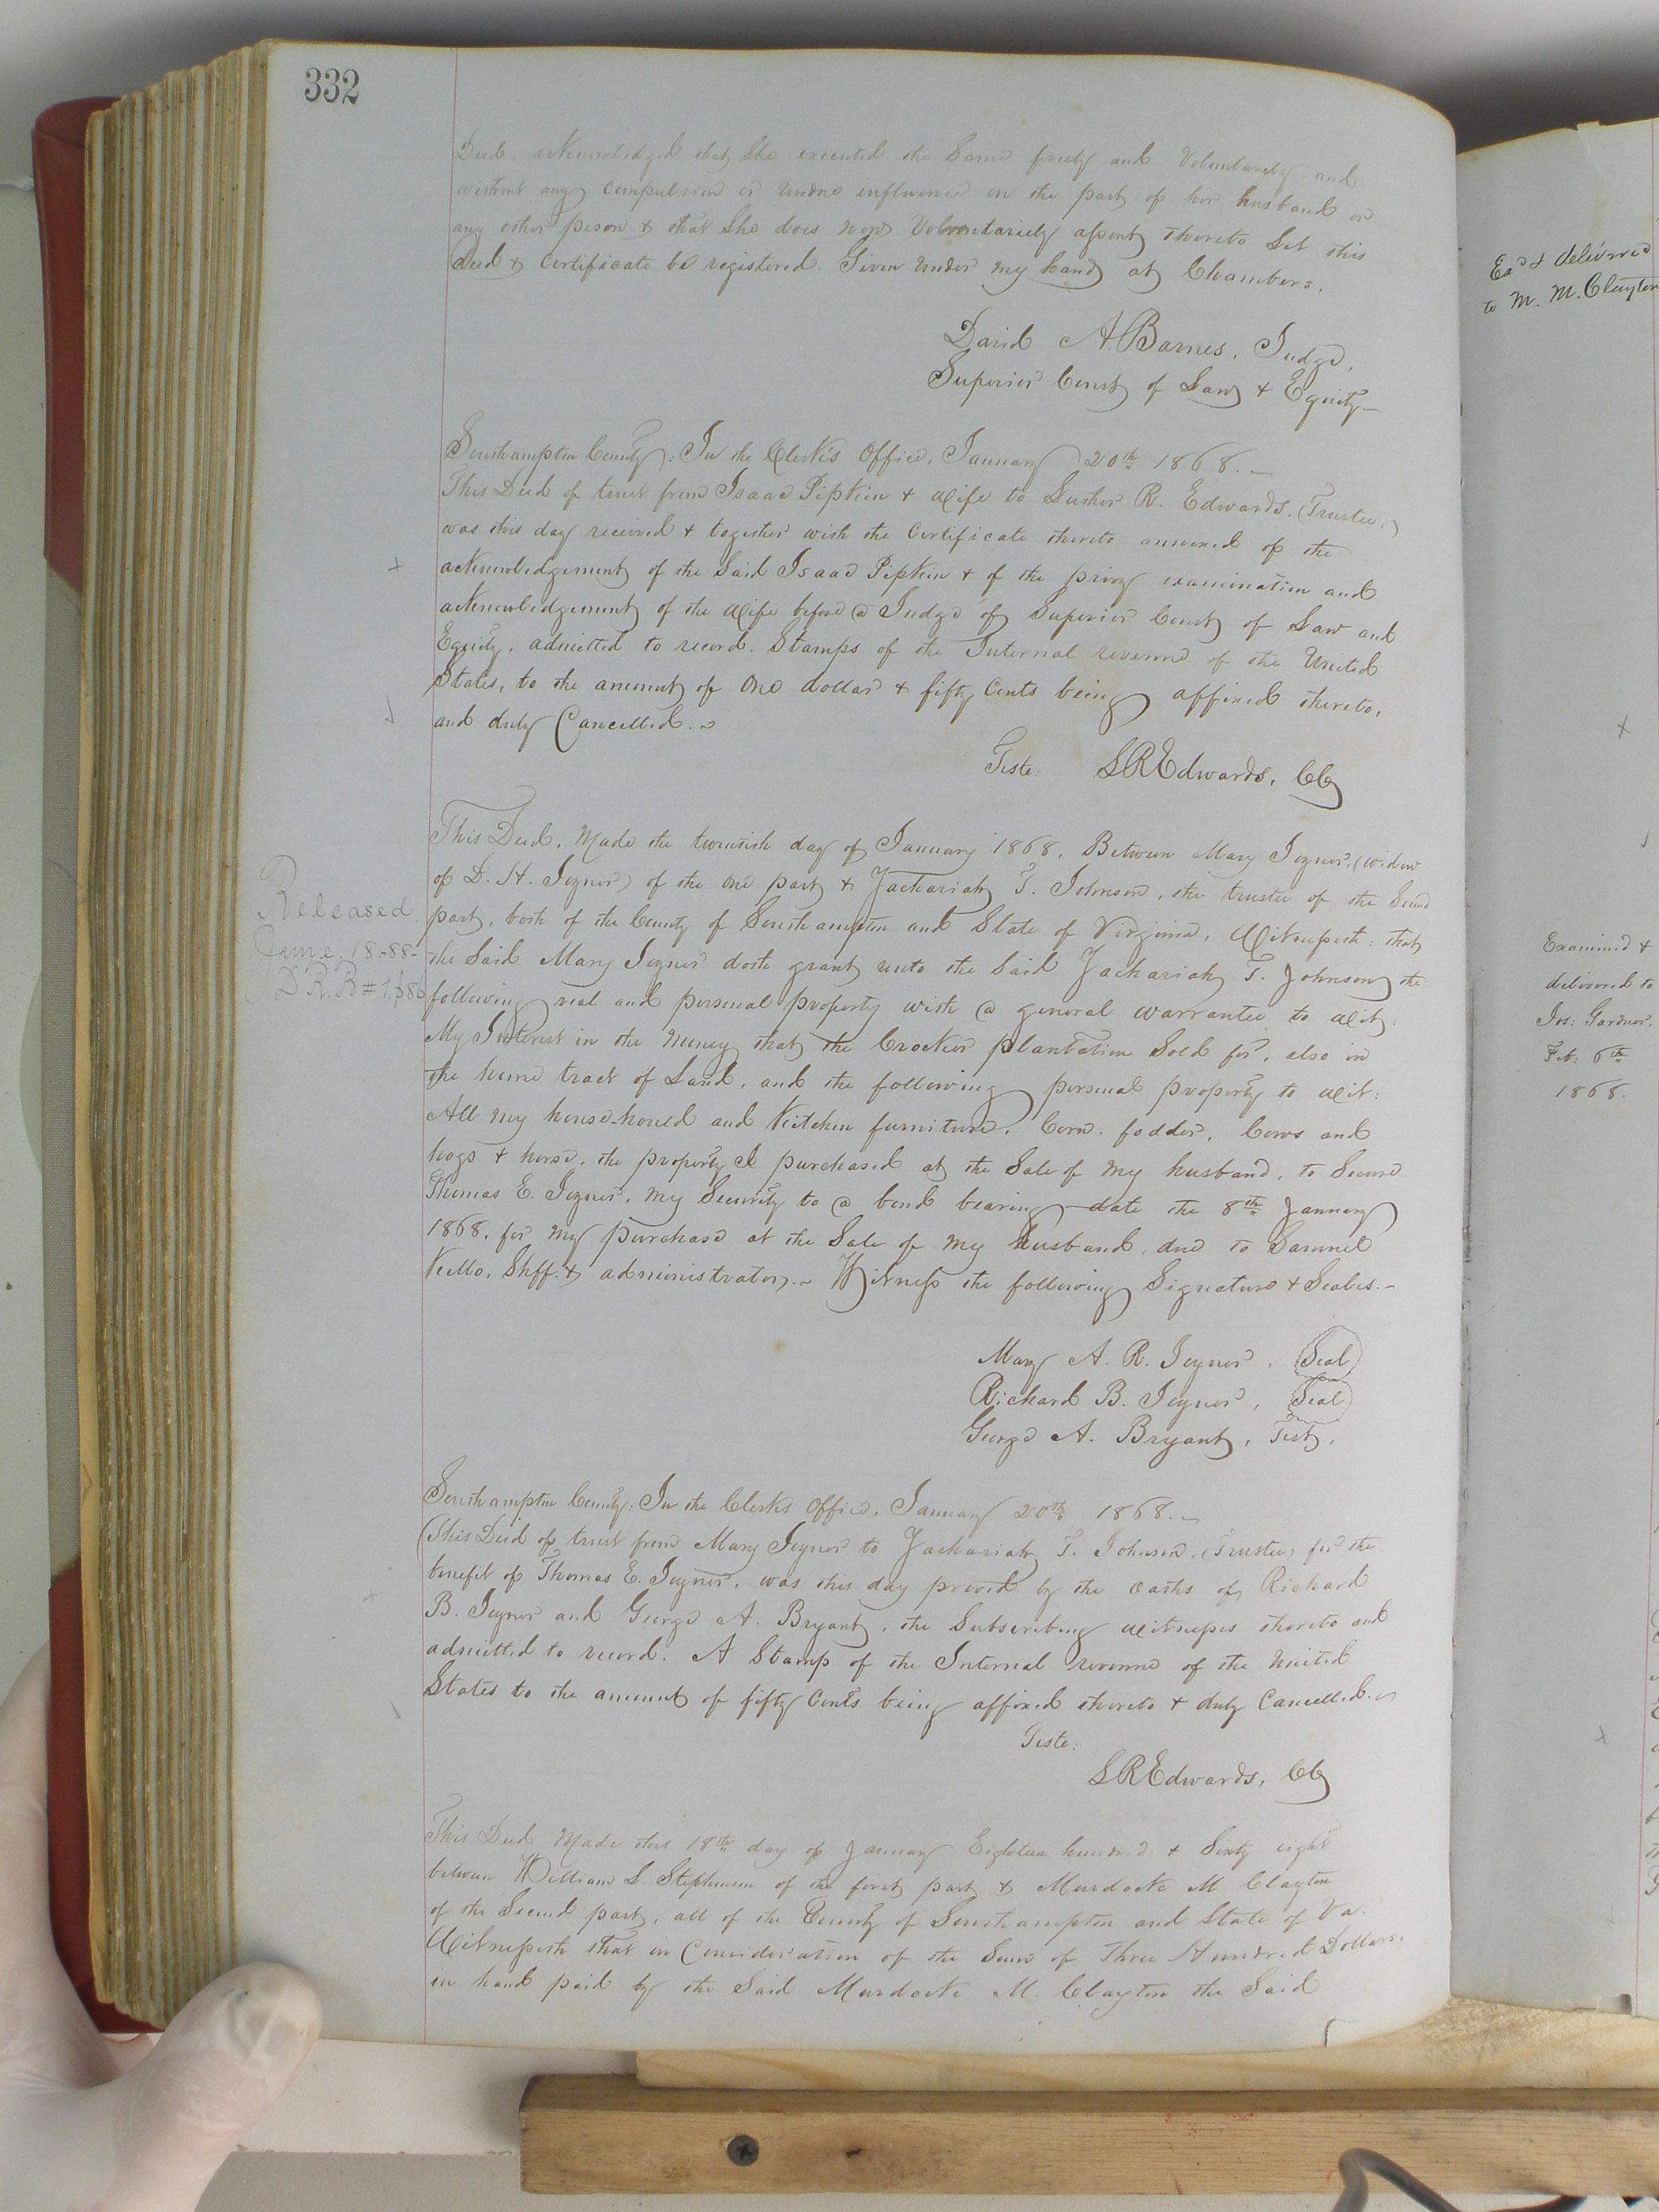 332
Deed acknowledged that She executed the Same freely and Voluntarily and
without any Compulsion or undue influence on the part of her husband or
any other person & that She does now Voluntarily assent thereto Let this
deed & Certificate be registered. Given under my hand at Chambers.
David A. Barnes, Judge,
Superior Court of Law & Equity.
Southampton County: In the Clerk's Office, January 20th 1868.
This Deed of trust from Isaac Pipkin & Wife to Luther R. Edwards, (Trustee,)
was this day received & together with the Certificate thereto annexed of the
acknowledgement of the Said Isaac Pipkin & of the privy examination and
acknowledgement of the Wife before a Judge of Superior Court of Law and
Equity, admitted to record. Stamps of the Internal revenue of the United
States, to the amount of One dollar & fifty Cents being affixed thereto,
and duly Cancelled.
Teste: L R Edwards, CC
This Deed, Made the twentieth day of January 1868, Between Mary Joyner, (widow
of D. H. Joyner) of the one part & Zachariah T. Johnson, the trustee of the Second
part, both of the County of Southampton and State of Virginia, Witnesseth: that
the Said Mary Joyner doth grant unto the Said Zachariah T. Johnson the
following real and personal property with a general warrantee to wit:
My Interest in the Money that the Crocker plantation Sold for, also in
the home tract of Land, and the following personal property to wit:
All my house-hould and Kitchen furniture, Corn, fodder, Cows and
hogs & horse, the property I purchased at the Sale of my husband, to Secure
Thomas E. Joyner, my Security to a bond bearing date the 8th January
1868, for my purchase at the Sale of my husband, due to Samuel
Kello, Shff. & administrator. Witness the following Signature & Seales.
Released
June, 18-88-
D.R.B # 1. p 86
Mary A. R. Joyner, Seal
Richard B. Joyner, Seal
George A. Bryant, Test,
Southampton County: In the Clerks Office, January 20th 1868.
This Deed of trust from Mary Joyner to Zachariah T. Johnson, (Trustee) for the
benefit of Thomas E. Joyner, was this day proved by the oaths of Richard
B. Joyner and George A. Bryant, the Subscribing witnesses thereto and
admitted to record. A Stamp of the Internal revenue of the United
States to the amount of fifty Cents being affixed thereto & duly Cancelled.
Teste:
L R Edwards, CC
This Deed Made this 18th day of January Eighteen hundred & Sixty eight
between William L. Stephenson of the first part & Murdock M Clayton
of the Second part, all of the County of Southampton and State of Va.
Witnesseth that in Consideration of the Sum of Three Hundred Dollars,
in hand paid by the Said Murdock M. Clayton the Said
Exd & delivered
to M. M. Clayton
Examined &
delivered to
Jos: Gardner,
Feb: 6th
1868.